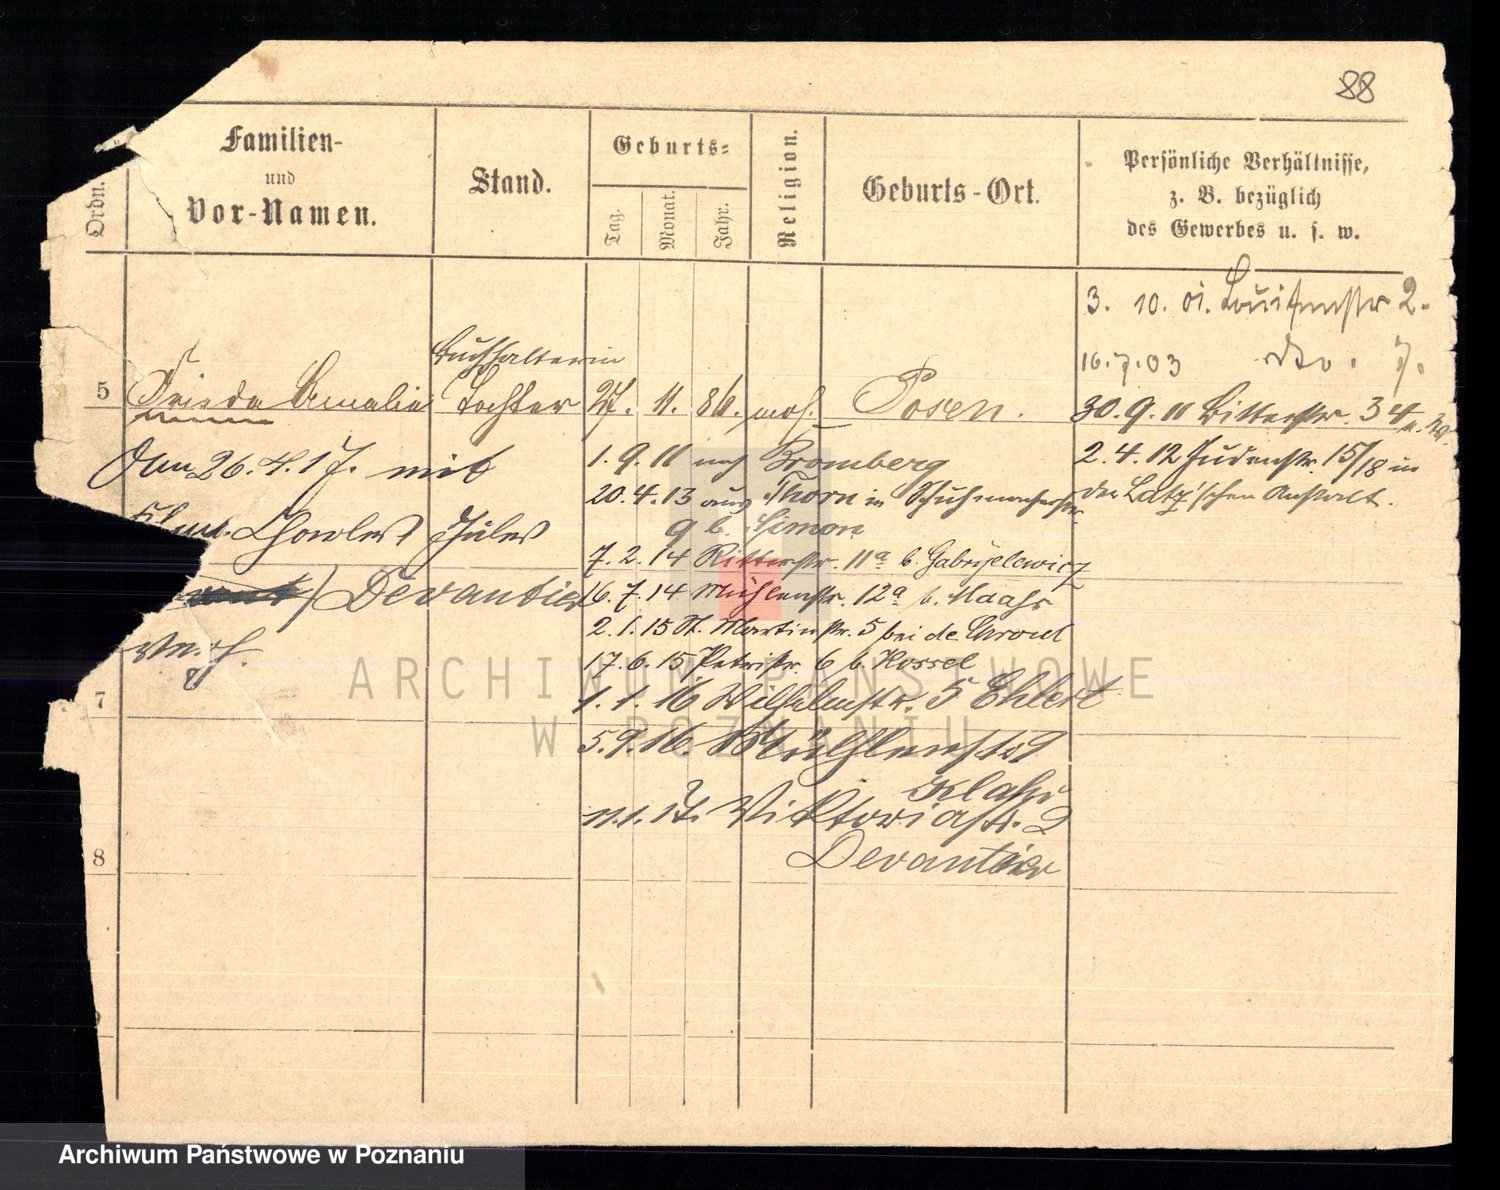 88
Ordn.
Familien-
und
Vor-Namen.
Stand.
Geburts-
Tag.
Monat.
Jahr.
Religion.
Geburts-Ort.
Persönliche Verhältnisse,
z. B. bezüglich
des Gewerbes u. s. w.
3. 10. 01. Louisenstr 2.
16.7.03 do. 7.
Buchhalterin
5 Frieda Amalie Tochter 27. 11. 86. mos. Posen.
30. 9. 11 Ritterstr. 34
Den 26. 4. 17. mit
1. 9. 11 nach Bromberg
2. 4. 12 Judenstr. 15/18 in
20. 4. 13 aus Thorn in Schuhmacherstr
der Latz'schen Anstalt.
9 b. Simon
Charles Jules
7. 2. 14 Ritterstr. 11a b. Gabrylewicz
Devantier
16. 7. 14 Mühlenstr. 12a b. Haahs
2. 1. 15 St. Martinstr. 5 bei de
verh.
17. 6. 15 Petristr. 6 b. Kossel
7
1. 1. 16 Wilhelmstr. 5 Ehlert
5. 9. 16. Mühlenstr 9
11. 1. 17. Viktoriastr. 2
Devantier
8
ARCHIWUM PAŃSTWOWE
W POZNANIU
Archiwum Państwowe w Poznaniu